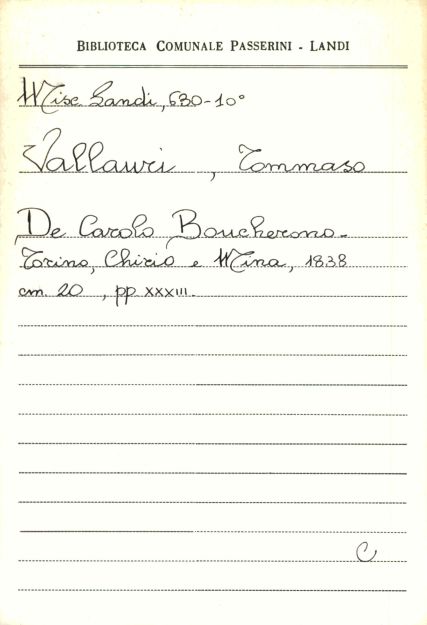 BIBLIOTECA COMUNALE PASSERINI - LANDI
Misc Landi, 630-10°
Vallauri, Tommaso
De Carolo Boucherono.
Torino, Chirio e Mina, 1838
cm. 20, pp XXXIII.
C